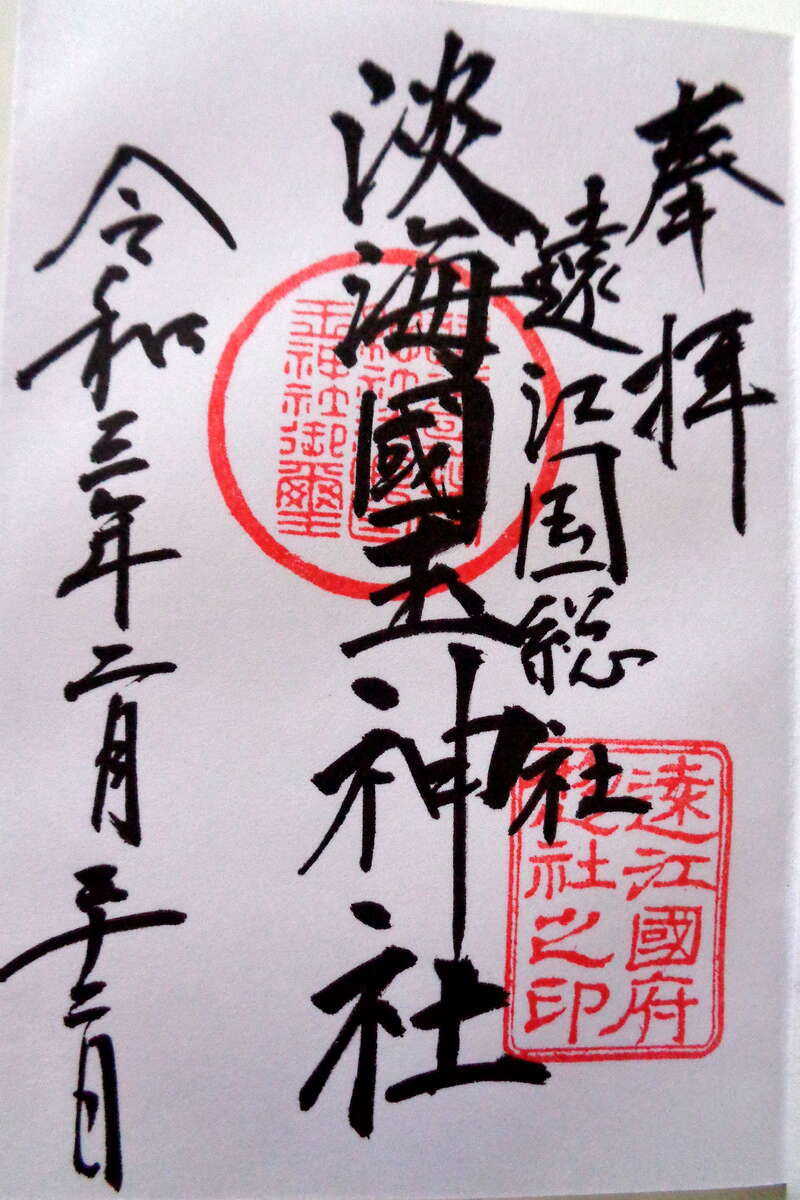 奉拝
遠江国総社
淡海國玉神社
令和三年二月二十二日
玉神社御璽
遠江國府
社之印